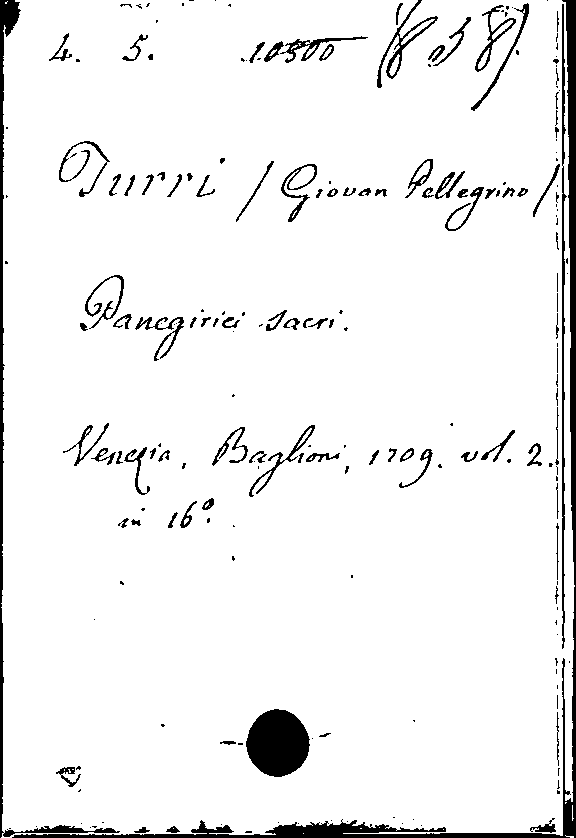 4. 5. 10500 (858).
Turri / Giovan Pellegrino /
Panegirici sacri.
Venezia, Baglioni, 1709. vol. 2.
in 16º.